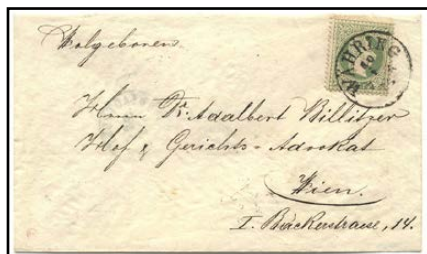 Wolgeboren
WÄHRING
Herrn Dr. Adalbert Billitzer
Hof & Gerichts-Advokat
Wien.
I. Bäckerstrasse, 14.